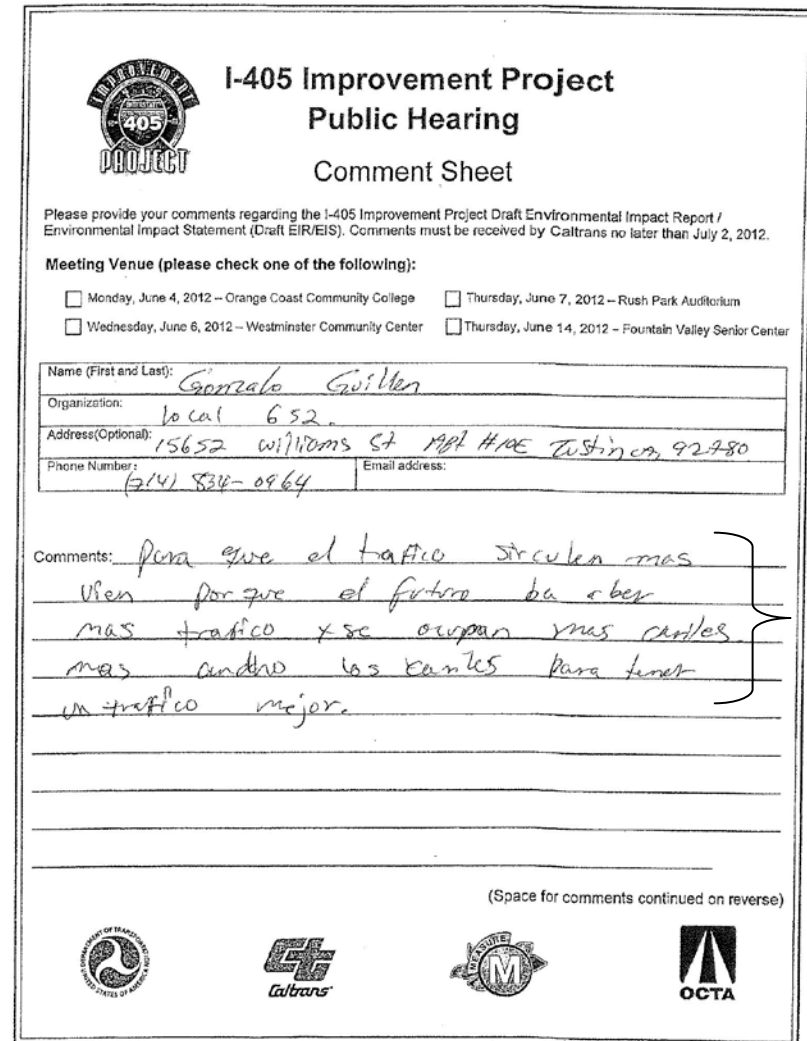 IMPROVEMENT
405
PROJECT
I-405 Improvement Project
Public Hearing
Comment Sheet
Please provide your comments regarding the I-405 Improvement Project Draft Environmental Impact Report /
Environmental Impact Statement (Draft EIR/EIS). Comments must be received by Caltrans no later than July 2, 2012.
Meeting Venue (please check one of the following):
Monday, June 4, 2012 – Orange Coast Community College
Thursday, June 7, 2012 – Rush Park Auditorium
Wednesday, June 6, 2012 – Westminster Community Center
Thursday, June 14, 2012 – Fountain Valley Senior Center
Name (First and Last): Gonzalo Guillen
Organization: local 652.
Address(Optional): 15652 williams St Apt #10E Tustin ca, 92780
Phone Number: (714) 834-0964
Email address:
Comments: Para que el trafico sirculen mas
vien por que el futuro ba aber
mas trafico y se ocupan mas carriles
mas andho los carriles para tener
un trafico mejor.
(Space for comments continued on reverse)
DEPARTMENT OF TRANSPORTATION
UNITED STATES OF AMERICA
Caltrans
MEASURE
M
OCTA